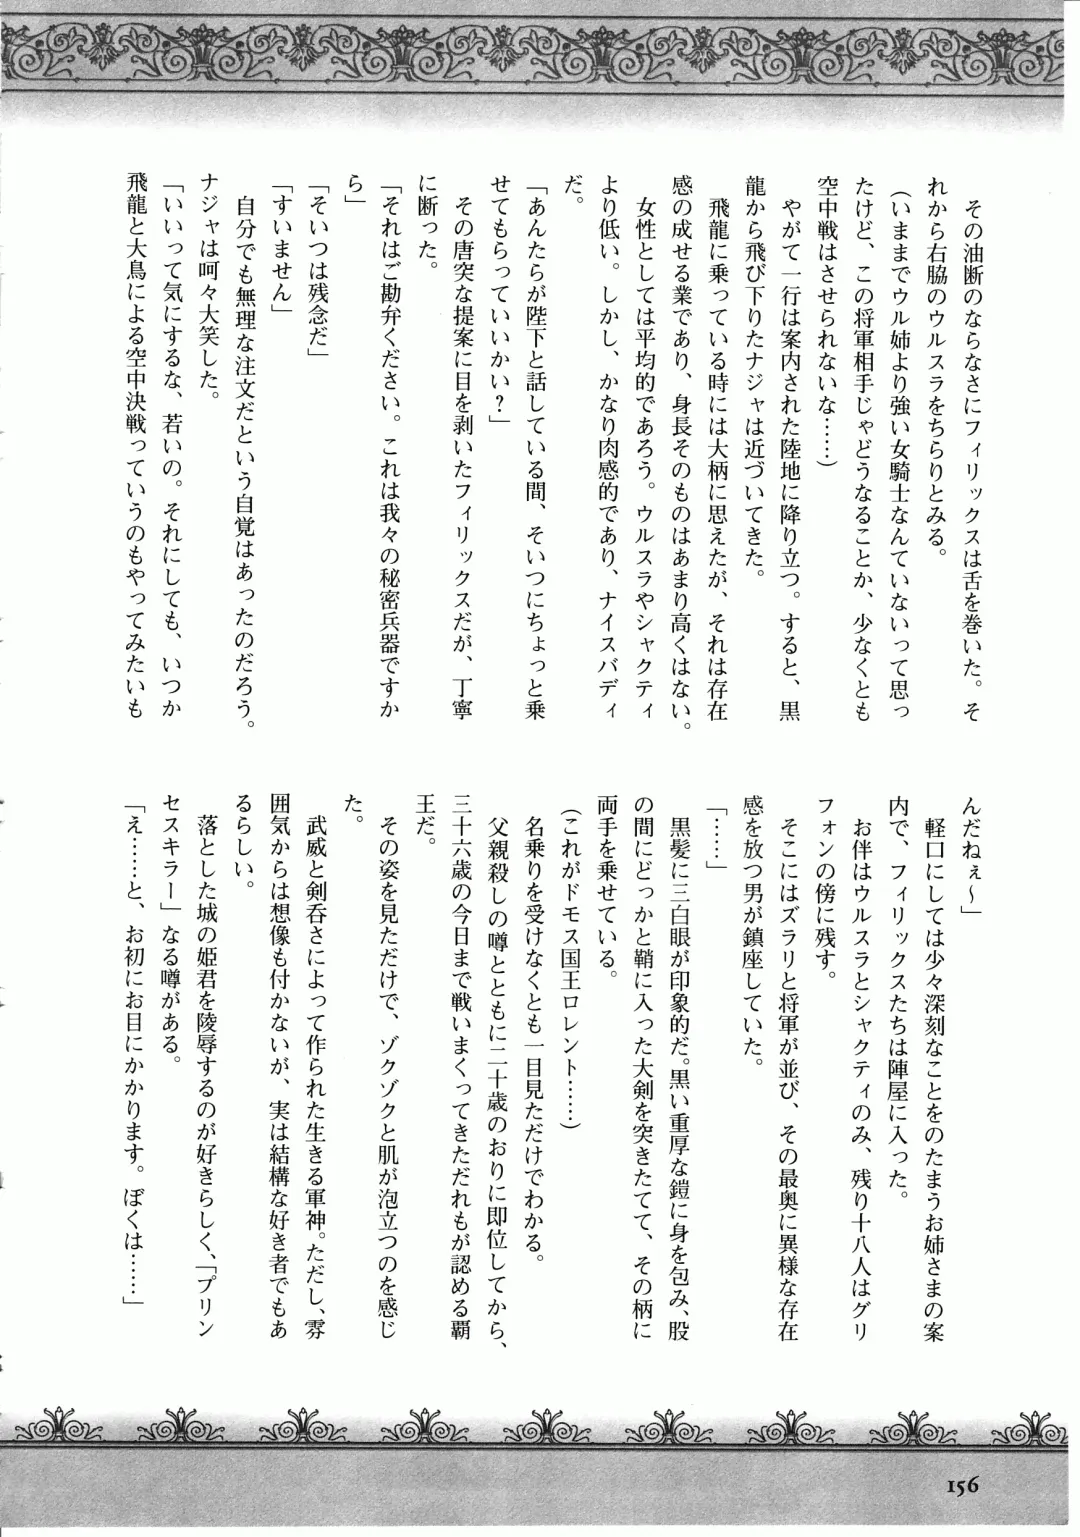 その油断のならなさにフィリックスは舌を巻いた。そ
れから右脇のウルスラをちらりとみる。
(いままでウル姉より強い女騎士なんていないって思っ
たけど、この将軍相手じゃどうなることか、少なくとも
空中戦はさせられないな……)
やがて一行は案内された陸地に降り立つ。すると、黒
龍から飛び下りたナジャは近づいてきた。
飛龍に乗っている時には大柄に思えたが、それは存在
感の成せる業であり、身長そのものはあまり高くはない。
女性としては平均的であろう。ウルスラやシャクティ
より低い。しかし、かなり肉感的であり、ナイスバディ
だ。
「あんたらが陛下と話している間、そいつにちょっと乗
せてもらっていいかい?」
その唐突な提案に目を剥いたフィリックスだが、丁寧
に断った。
「それはご勘弁ください。これは我々の秘密兵器ですか
ら」
「そいつは残念だ」
「すいません」
自分でも無理な注文だという自覚はあったのだろう。
ナジャは呵々大笑した。
「いいって気にするな、若いの。それにしても、いつか
飛龍と大鳥による空中決戦っていうのもやってみたいも
んだねぇ~」
軽口にしては少々深刻なことをのたまうお姉さまの案
内で、フィリックスたちは陣屋に入った。
お伴はウルスラとシャクティのみ、残り十八人はグリ
フォンの傍に残す。
そこにはズラリと将軍が並び、その最奥に異様な存在
感を放つ男が鎮座していた。
「……」
黒髪に三白眼が印象的だ。黒い重厚な鎧に身を包み、股
の間にどっかと鞘に入った大剣を突きたてて、その柄に
両手を乗せている。
(これがドモス国王ロレント……)
名乗りを受けなくとも一目見ただけでわかる。
父親殺しの噂とともに二十歳のおりに即位してから、
三十六歳の今日まで戦いまくってきただれもが認める覇
王だ。
その姿を見ただけで、ゾクゾクと肌が泡立つのを感じ
た。
武威と剣呑さによって作られた生きる軍神。ただし、雰
囲気からは想像も付かないが、実は結構な好き者でもあ
るらしい。
落とした城の姫君を陵辱するのが好きらしく、「プリン
セスキラー」なる噂がある。
「え……と、お初にお目にかかります。ぼくは……」
156